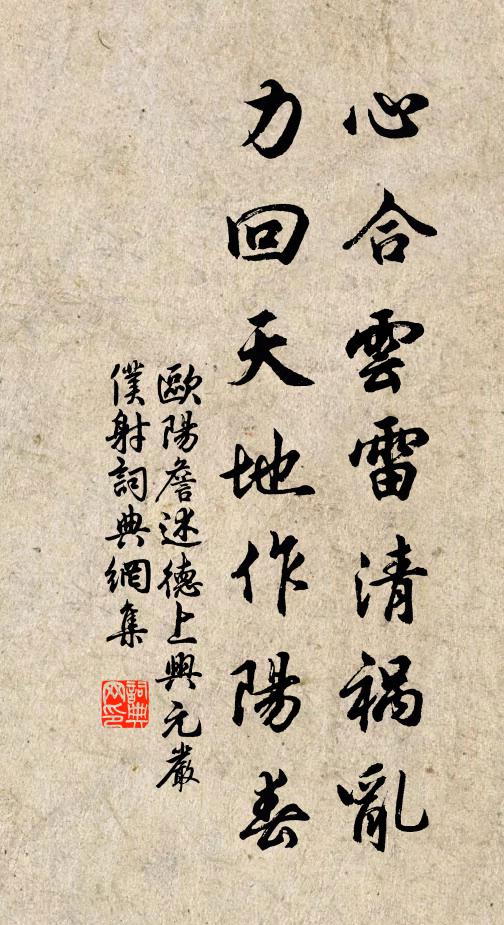 心合雲雷清禍亂
力回天地作陽春
歐陽詹述德上興元嚴
僕射詞典網集
詞典網印